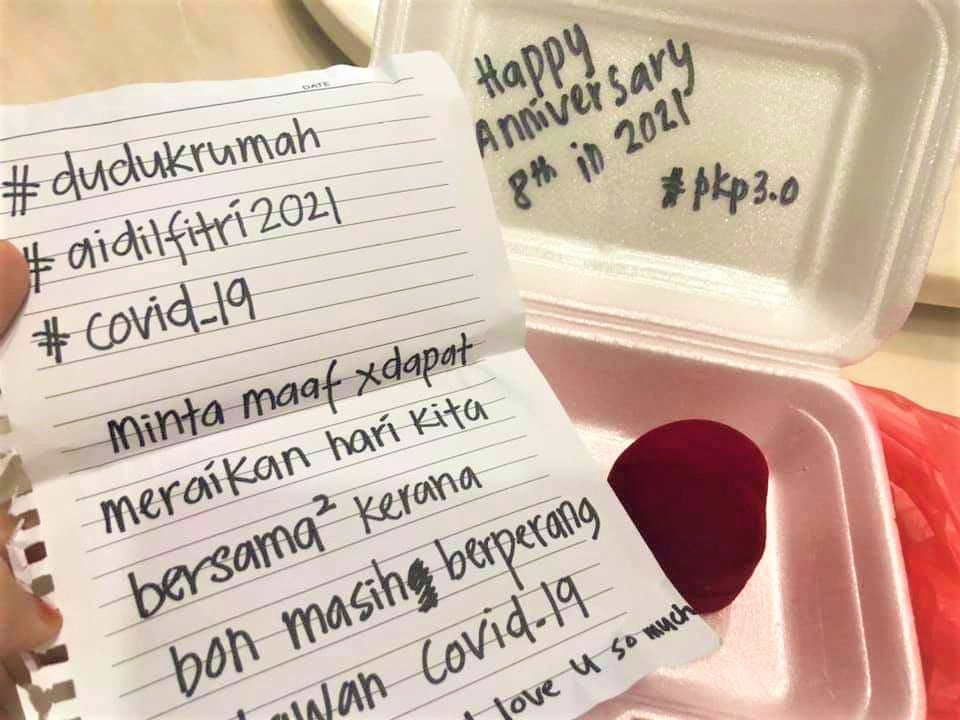 DATE
#dudukrumah
#aidilfitri2021
#covid_19
minta maaf xdapat
meraikan hari kita
bersama² kerana
boh masih berperang
covid_19
love u so much
Happy
Anniversary
8th in 2021
#pkp3.0